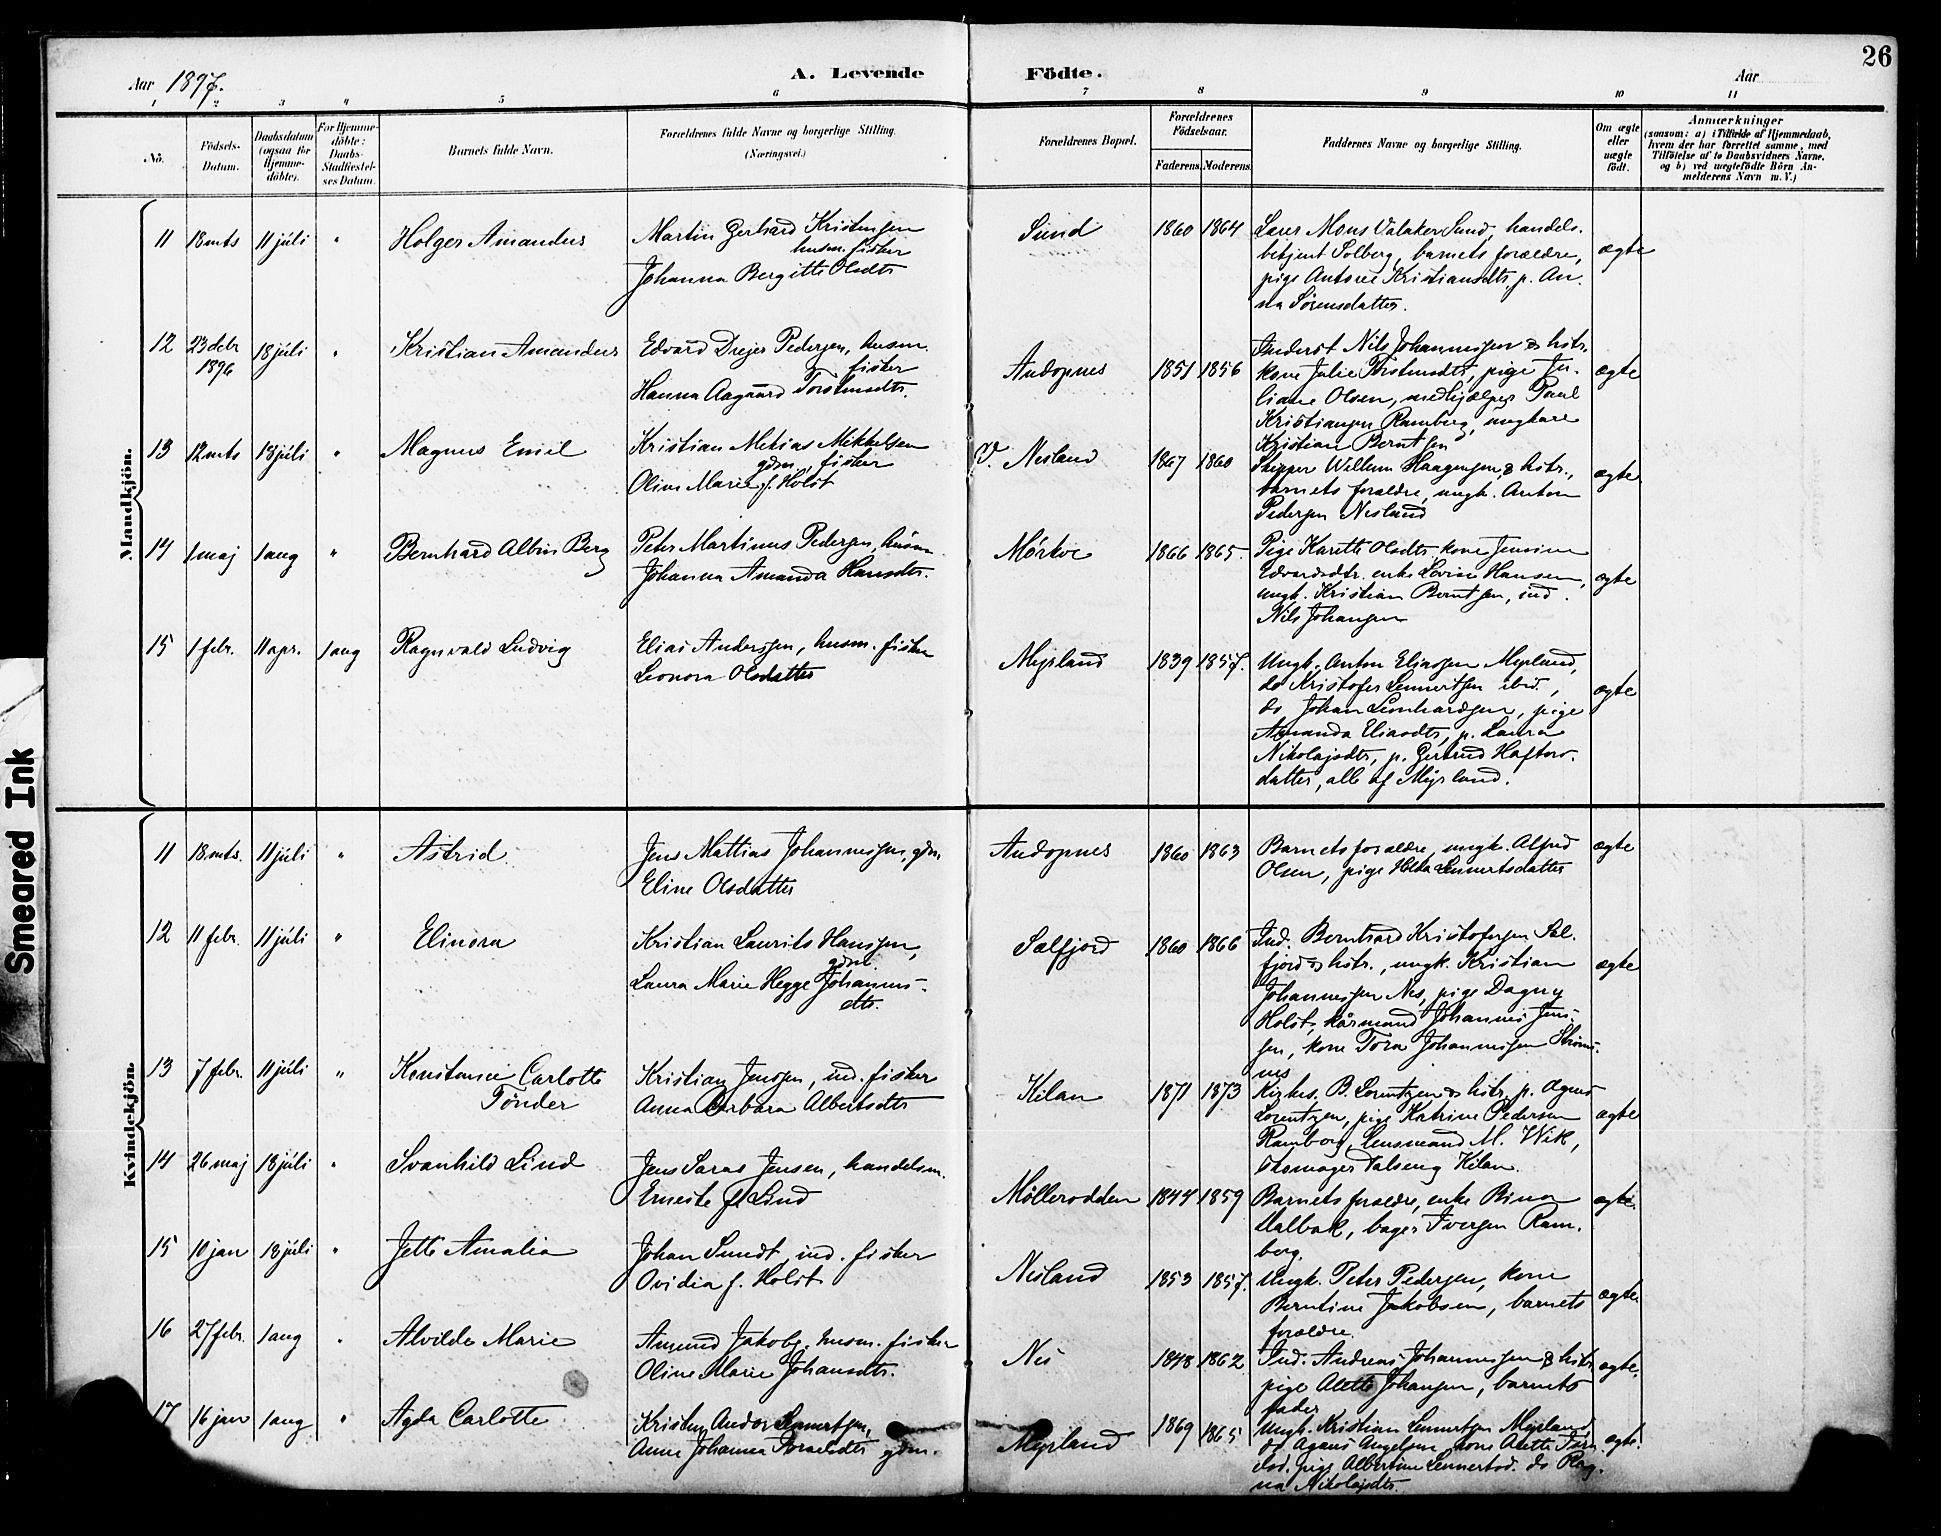 26
Aar 1897.
A. Levende Födte.
Aar
1 2 3 4 5 6 7 8 9 10 11
No.
Födsels-Datum.
Daabsdatum (ogsaa for Hjemme-döbte).
For Hjemme-döbte: Daabs-Stadfæstel-ses Datum.
Barnets fulde Navn.
Forældrenes fulde Navne og borgerlige Stilling.
(Næringsvei.)
Forældrenes Bopæl.
Forældrenes Födselsaar.
Faderens. Moderens.
Faddernes Navne og borgerlige Stilling.
Om ægte eller uægte födt.
Anmærkninger
(saasom: a) i Tilfælde af Hjemmedaab,
hvem der har forrettet samme, med
Tilföielse af to Daabsvidners Navne,
og b) ved uægtefödte Börn An-
melderens Navn m. V.)
Mandkjön.
11 18 mts 11 júli " Holger Amandus
Martin Gerhard Kristensen
husm. fisker
Johanna Bergitte Olsdtr
Sund 1860 1864
Lærer Mons Valaker Sund, handels-
betjent Solberg, barnets forældre,
pige Antonie Kristiansdtr, p. An-
na Sørensdatter.
ægte
12 23 debr 1896 18 júli " Kristian Amandus
Edvard Drejer Pedersen, husm.
fisker
Hanna Aagaard Torstensdtr.
Andopnes 1851 1856
Nils Johannessen & hstr.
kone Julie Torstensdtr, pige Ju-
liane Olsen, medhjælper Paul
Kristiansen Ramberg, ungkare
Kristian Berntsen
ægte
13 12 mts 18 júli " Magnus Emil
Kristian Metias Mikkelsen
gdm. fisker
Oline Marie f. Holst
V. Nesland 1867 1860
Skipper Willum Haagensen & hstr.,
barnets forældre, ungk. Anton
Pedersen Nesland
ægte
14 1 maj 1 aug " Bernhard Albin Berg
Peter Martinus Pedersen, husm.
Johanna Amanda Hansdtr.
Mørkve 1866 1865.
Pige Karette Olsdtr. kone Jensine
Edvardsdtr. enke Lovise Hansen,
ungk. Kristian Berntsen, ind.
Nils Johansen
ægte
15 1 febr. 11 apr. 1 aug Ragnvald Ludvig
Elias Anderssen, husm. fisker
Leonora Olsdatter
Myrland 1839 1857.
Ungk. Anton Eliassen Myrland,
do Kristofer Lennertsen ibid.,
do Johan Leonhardsen, pige
Amanda Eliasdtr, p. Laura
Nikolajsdtr, p. Gertrud Haftors-
datter, alle af Myrland.
ægte
Kvindekjön.
11 18 mts. 11 júli " Astrid
Jens Mattias Johannessen, gdm.
Eline Olsdatter
Andopnes 1860 1863
Barnets forældre, ungk. Alfred
Olsen, pige Hilda Lennertsdatter
ægte
12 11 febr. 11 júli " Elinora
Kristian Laurits Hanssen,
gdm.
Laura Marie Hegge Johannes-
dtr.
Selfjord 1860 1866
Ind. Bernhard Kristofersen Sel-
fjord & hstr., ungk. Kristian
Johannessen Nes, pige Dagny
Holst, kårmand Johannes Jens-
sen, kone Tora Johannessen Strøm-
nes
ægte
13 7 febr. 11 júli " Konstanse Carlotte
Tønder
Kristian Jenssen, ind. fisker
Anna Barbara Albertsdtr
Kilan 1871 1873
Kirkes. B. Lorentzen & hstr. p. Agnes
Lorentzen, pige Katrine Pedersen
Ramberg, lensmand M. Wik,
skomager Valseng Kilan.
ægte
14 26 maj 18 júli " Svanhild Lind
Jens Saras Jensen, handelsm.
Erneste f. Lind
Møllerodden 1844 1859
Barnets forældre, enke Bina
Dalbak, bager Iversen Ram-
berg.
ægte
15 10 jan 18 júli " Jette Amalia
Johan Sundt, ind. fisker
Ovidia f. Holst
Nesland 1853 1857.
Ungk. Peter Pedersen, kone
Berntine Jakobsen, barnets
forældre.
ægte
16 27 febr. 1 aug " Alvilde Marie
Amund Jakobs. husm. fisker
Oline Marie Johansdtr.
Nes 1848 1862
Ind. Andreas Johannessen & hstr
pige Alette Johansen, barnets
fader
ægte.
17 16 jan 1 aug " Agda Carlotte
Kristen Andor Lennertsen,
Anne Johanna gdm.
Myrland 1869 1865
Ungk. Kristian Lennertsen Myrland,
do Agaus Angelsen, kone Alette
pige Albertine Lennertsd. do Rag-
na Nikolajsdtr.
ægte.
Smeared Ink